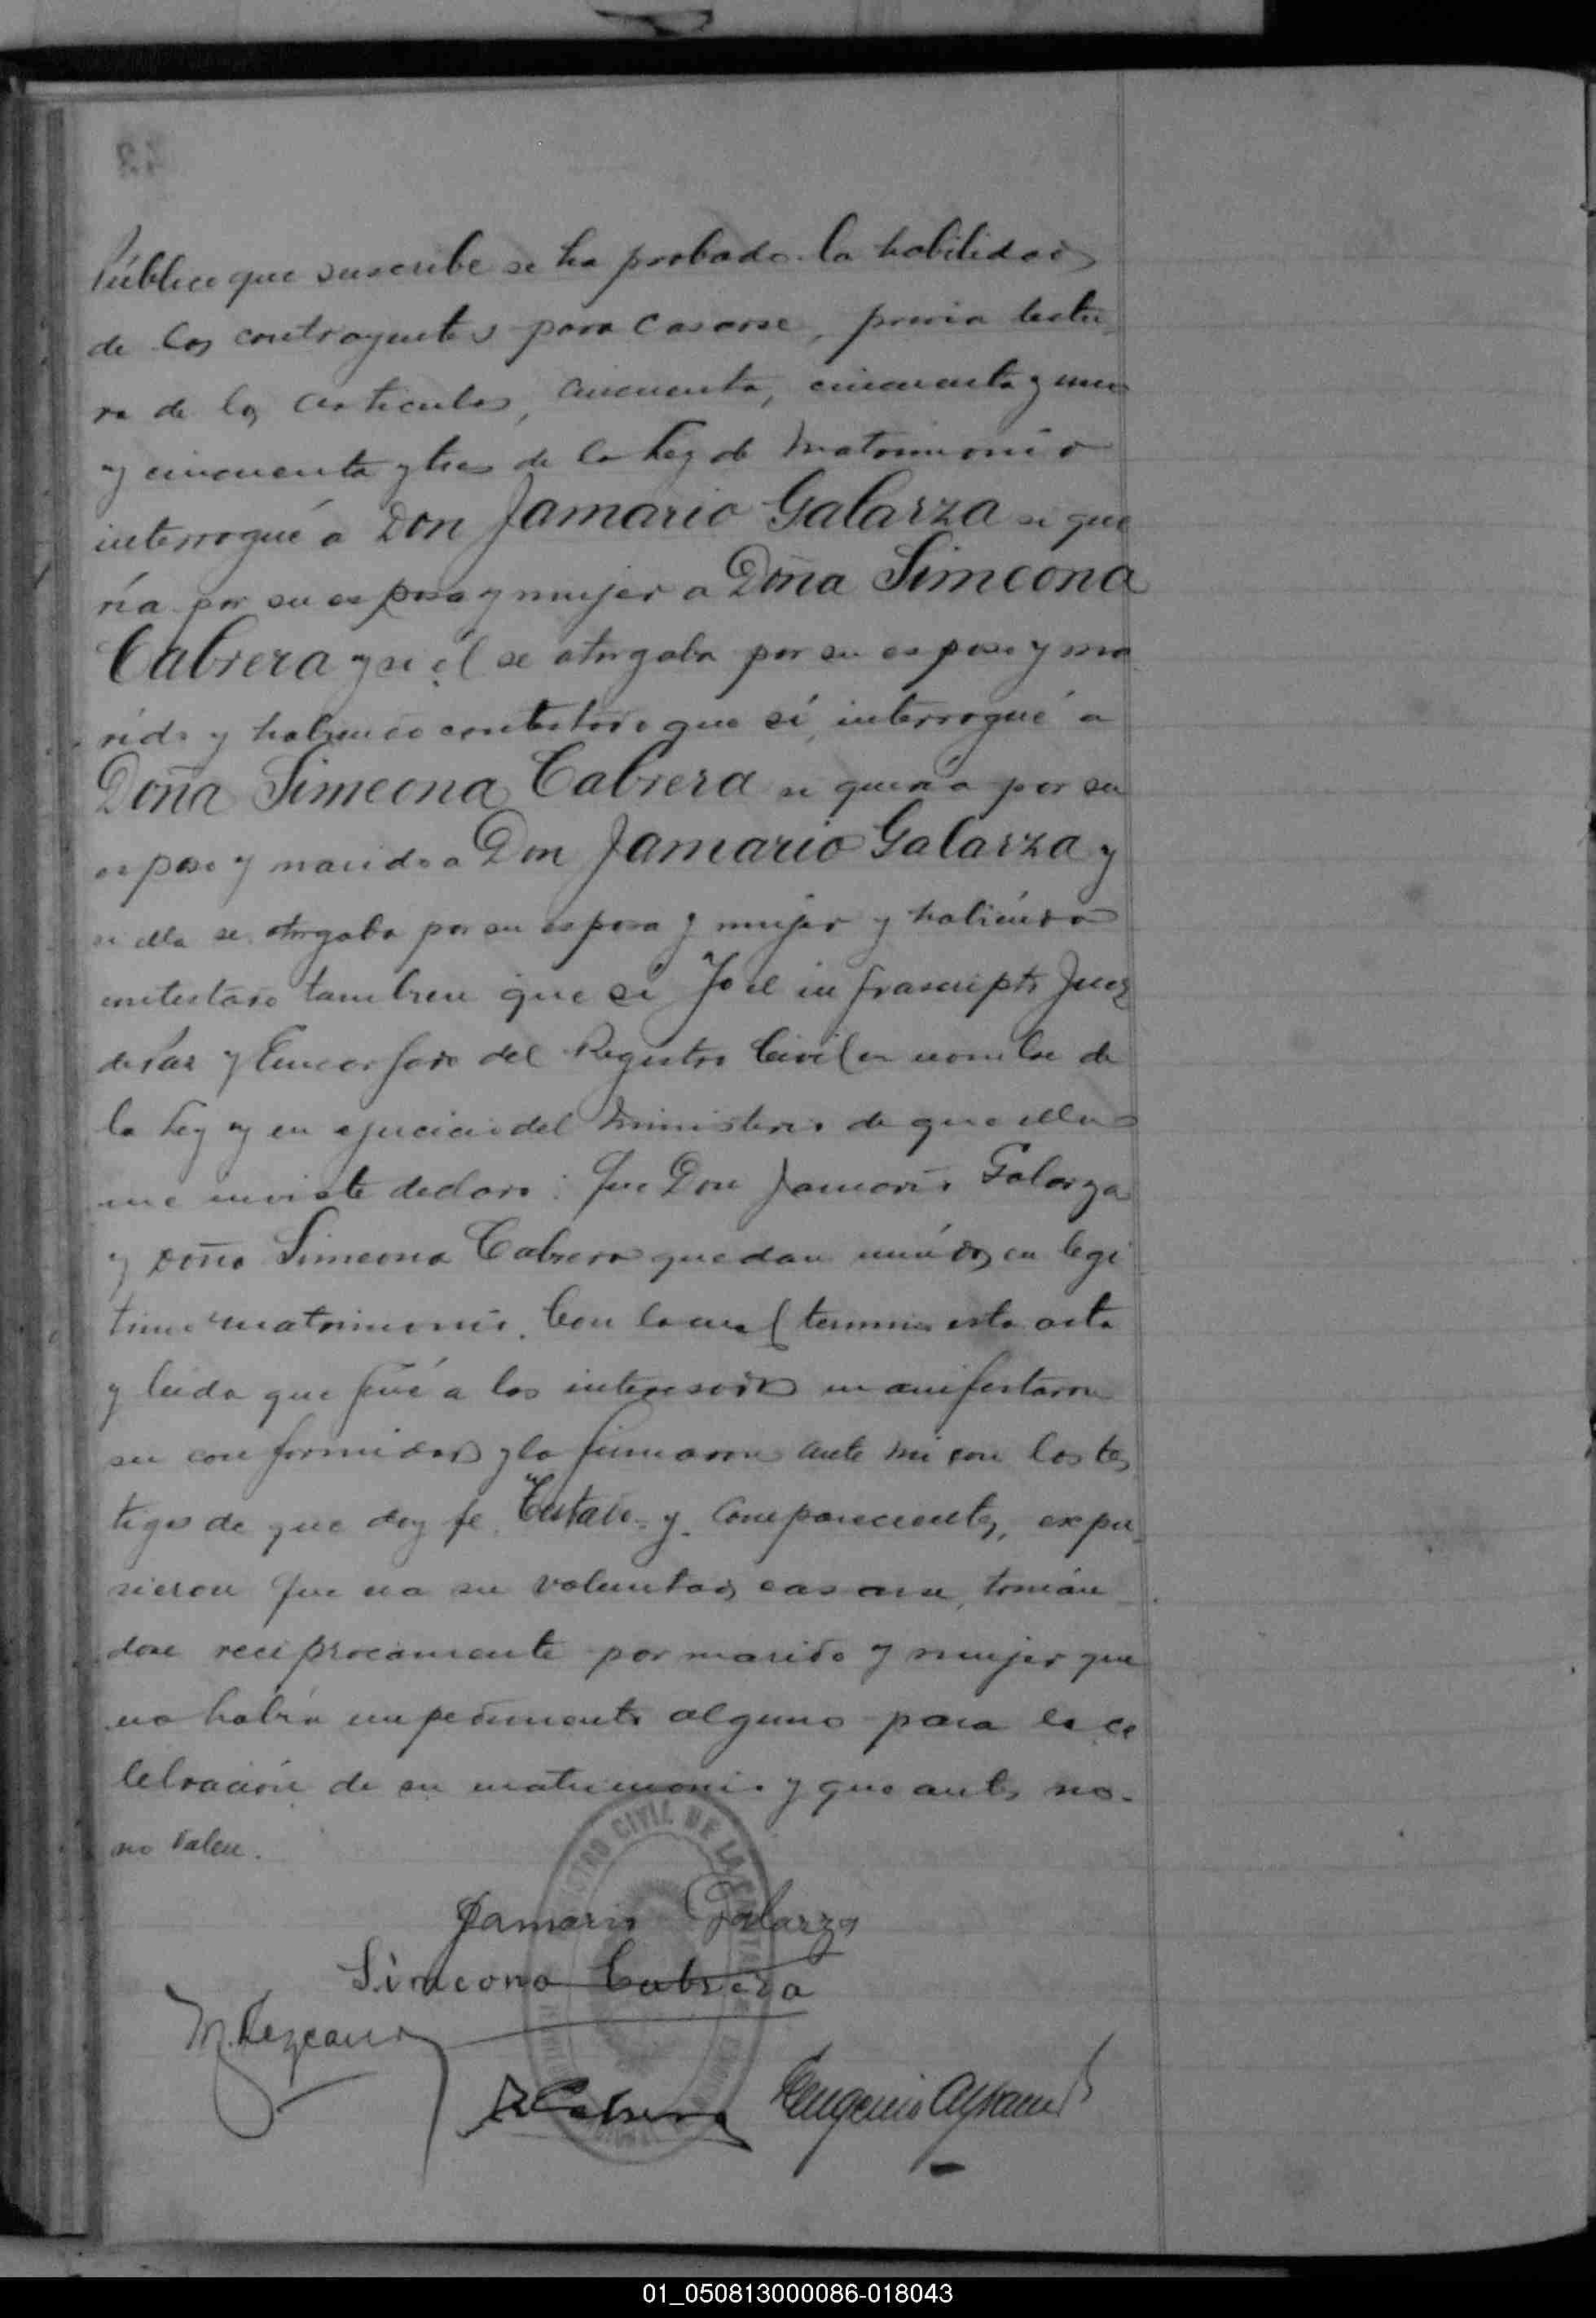 Público que suscribe se ha probado la habilidad
de los contrayentes para casarse, previa lectu
ra de los articulos, cincuenta, cincuenta y uno
y cincuenta y tres de la Ley de Matrimonio
interrogué a Don Jamario Galarza si que
ría por su esposa y mujer a Doña Simeona
Cabrera y si él se otorgaba por su esposo y ma
rido y habiendo contestado que sí, interrogué a
Doña Simeona Cabrera si quería por su
esposo y marido a Don Jamario Galarza y
si ella se otorgaba por su esposa y mujer y habiendo
contestado tambien que si Yo el infrascripto Juez
de Paz y Encargado del Registro Civil en nombre de
la Ley y en ejercicio del Ministerio de que ella
me inviste declaro: Que Don Jamario Galarza
y Doña Simeona Cabrera quedan unidos en legi
timo matrimonio. Con lo cual termino esta acta
y leida que fué a los interesados manifestaron
su conformidad y la firmaron ante mi con los tes
tigos de que doy fe. Testado = y. Comparecientes, expu
sieron que era su voluntad casarse, tomán
dose reciprocamente por marido y mujer que
no había impedimento alguno para la ce
lebración de su matrimonio y que antes no.
no valen.
REGISTRO CIVIL DE LA CAPITAL
Jamario Galarza
Simeona Cabrera
M. Lezcano
R Cabrera Eugenio
01_050813000086-018043